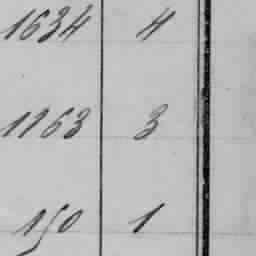 1634 4
1163 3
150 1